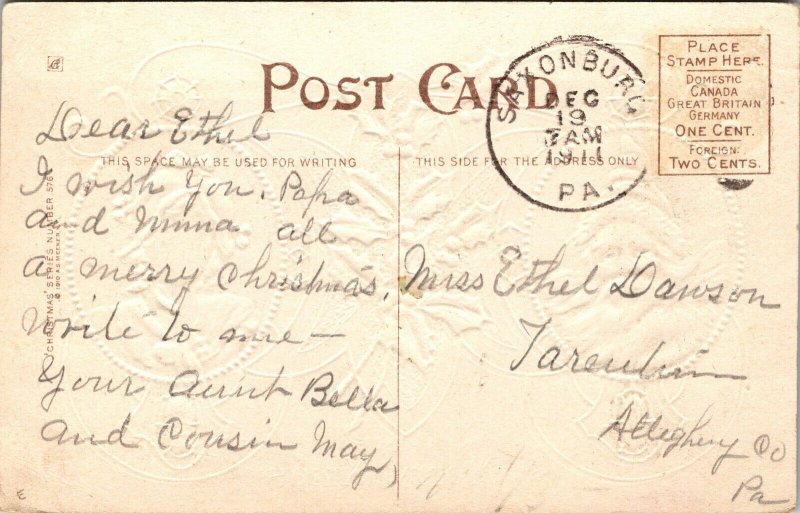 POST CARD
Dear Ethel
THIS SPACE MAY BE USED FOR WRITING
I wish You, Papa
and Mima all
a merry Christmas.
write to me —
Your Aunt Bella
and Cousin May
"CHRISTMAS" SERIES NUMBER 576
E
SAXONBURG
DEC
19
7 AM
1911
PA.
PLACE
STAMP HERE.
DOMESTIC
CANADA
GREAT BRITAIN
GERMANY
ONE CENT.
FOREIGN:
TWO CENTS.
THIS SIDE FOR THE ADDRESS ONLY
Miss Ethel Dawson
Tarentum
Allegheny Co
Pa